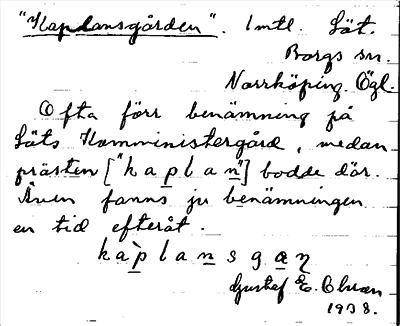 "Kaplansgården". Imtl. Löt.
Borgs sn.
Norrköping. Ögl.
Ofta förr benämning på
Löts Komministergård, medan
prästen ["kaplan"] bodde där.
Även fanns ju benämningen
en tid efteråt.
kaplansgaη
Gustef E. Olsson
1938.